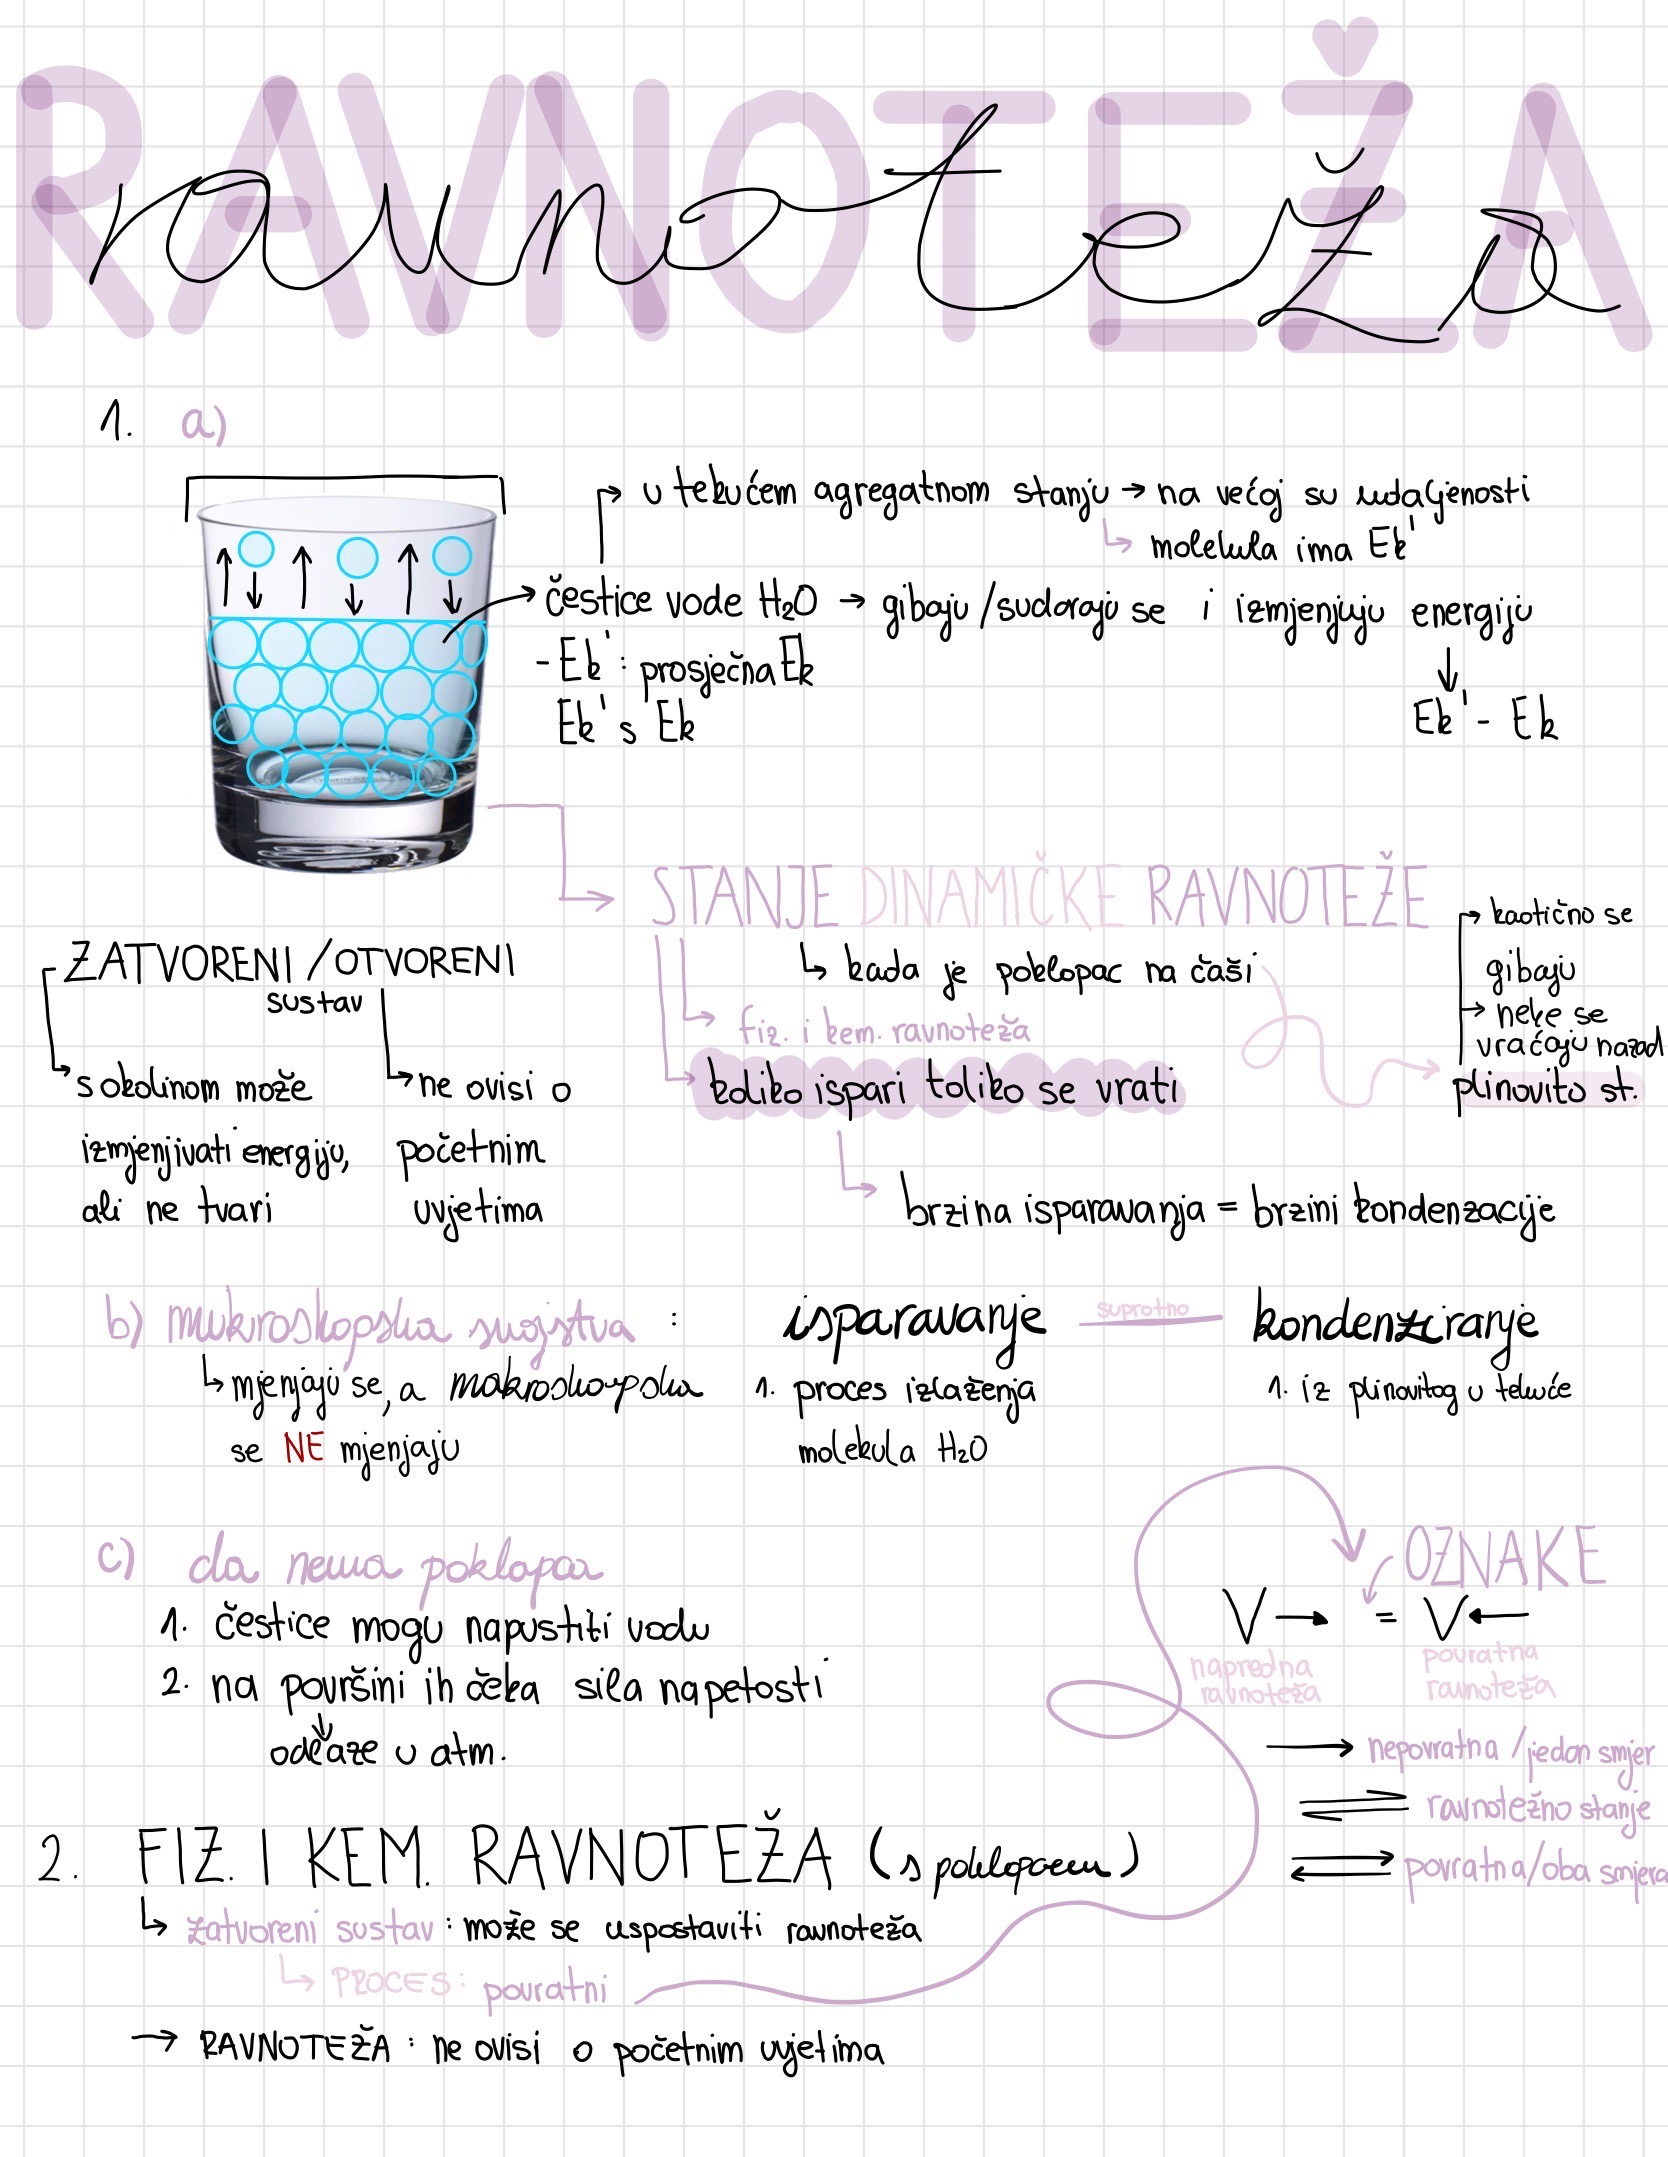 RAVNOTEŽA
ravnoteža
1. a)
u tekućem agregatnom stanju → na većoj su udaljenosti
molekula ima Ek'
čestice vode H₂O → gibaju/sudaraju se i izmjenjuju energiju
- Ek': prosječna Ek
Ek' s Ek
Ek' - Ek
STANJE DINAMIČKE RAVNOTEŽE
kada je poklopac na čaši
fiz. i kem. ravnoteža
koliko ispari toliko se vrati
brzina isparavanja = brzini kondenzacije
kaotično se
gibaju
neke se
vraćaju nazad
plinovito st.
ZATVORENI / OTVORENI
sustav
s okolinom može
izmjenjivati energiju,
ali ne tvari
ne ovisi o
početnim
uvjetima
b) mukroskopska svojstva :
mjenjaju se, a makroskoupska
se NE mjenjaju
isparavanje
suprotno
kondenziranje
1. proces izlaženja
molekula H₂O
1. iz plinovitog u tekuće
c) da nema poklopac
1. čestice mogu napustiti vodu
2. na površini ih čeka sila napetosti
odlaze u atm.
OZNAKE
V→ = V←
napredna
ravnoteža
povratna
ravnoteža
→ nepovratna / jedan smjer
⇌ ravnotežno stanje
⇄ povratna/oba smjera
2. FIZ. I KEM. RAVNOTEŽA (s poklopcem)
zatvoreni sustav : može se uspostaviti ravnoteža
PROCES: povratni
→ RAVNOTEŽA : ne ovisi o početnim uvjetima